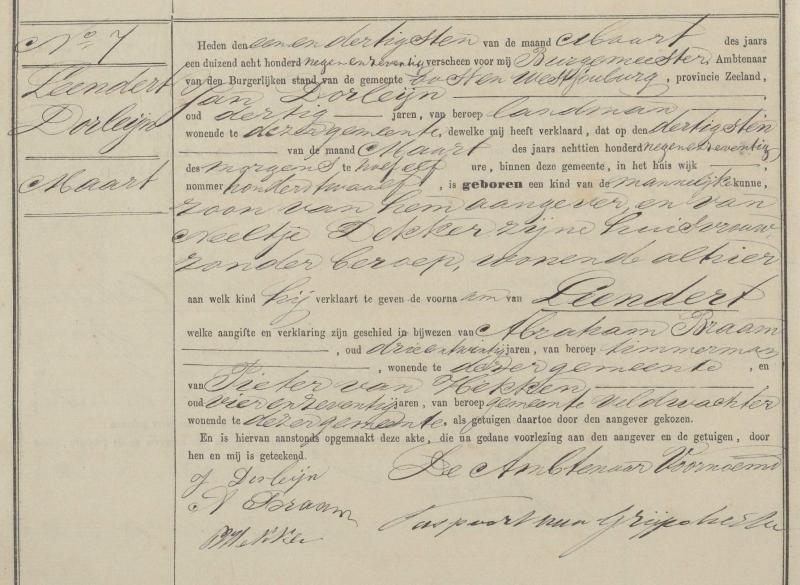 No 7
Leendert
Dorleijn
Maart
Heden den een en dertigsten van de maand Maart des jaars
een duizend acht honderd negen en zeventig verscheen voor mij Burgemeester, Ambtenaar
van den Burgerlijken stand van de gemeente Oosten Westsouburg, provincie Zeeland,
Jan Dorleijn
oud dertig jaren, van beroep landman
wonende te dezer gemeente, dewelke mij heeft verklaard, dat op den dertigsten
van de maand Maart des jaars achttien honderd negen en zeventig
des morgens te half elf ure, binnen deze gemeente, in het huis wijk
nommer honderd twaalf, is geboren een kind van de mannelijke kunne,
zoon van hem aangever, en van
Neeltje Dekker zijne huisvrouw
zonder beroep, wonende alhier
aan welk kind hij verklaart te geven de voorna am van Leendert
welke aangifte en verklaring zijn geschied in bijwezen van Abraham Braam
, oud drie en twintig jaren, van beroep timmerman
, wonende te dezer gemeente, en
van Pieter van Hekken
oud vier en zeventig jaren, van beroep gemeente veldwachter
wonende te dezer gemeente, als getuigen daartoe door den aangever gekozen.
En is hiervan aanstonds opgemaakt deze akte, die na gedane voorlezing aan den aangever en de getuigen, door
hen en mij is geteekend.
J Dorleijn
De Ambtenaar Voornoemd
A Braam